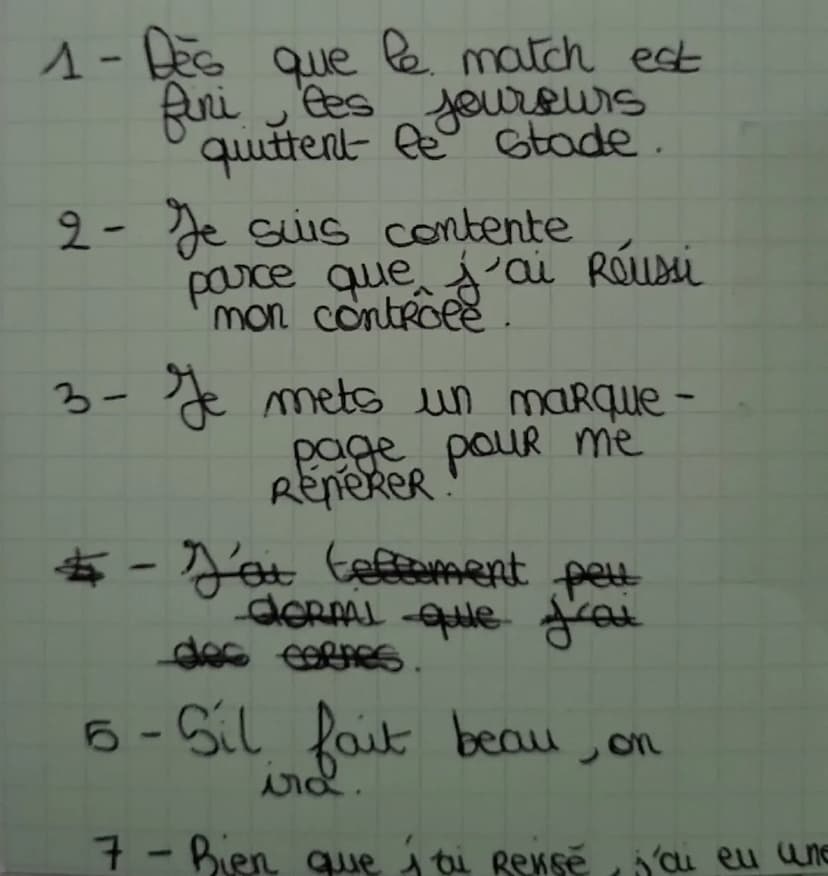 1 - Dès que le match est
fini, les joueurs
quittent le stade.
2 - Je suis contente
parce que j'ai réussi
mon contrôle.
3 - Je mets un marque-
page pour me
repérer.
4 - J'ai tellement peu
dormi que j'ai
des cernes.
5 - S'il fait beau, on
ira.
7 - Bien que j'ai révisé, j'ai eu une